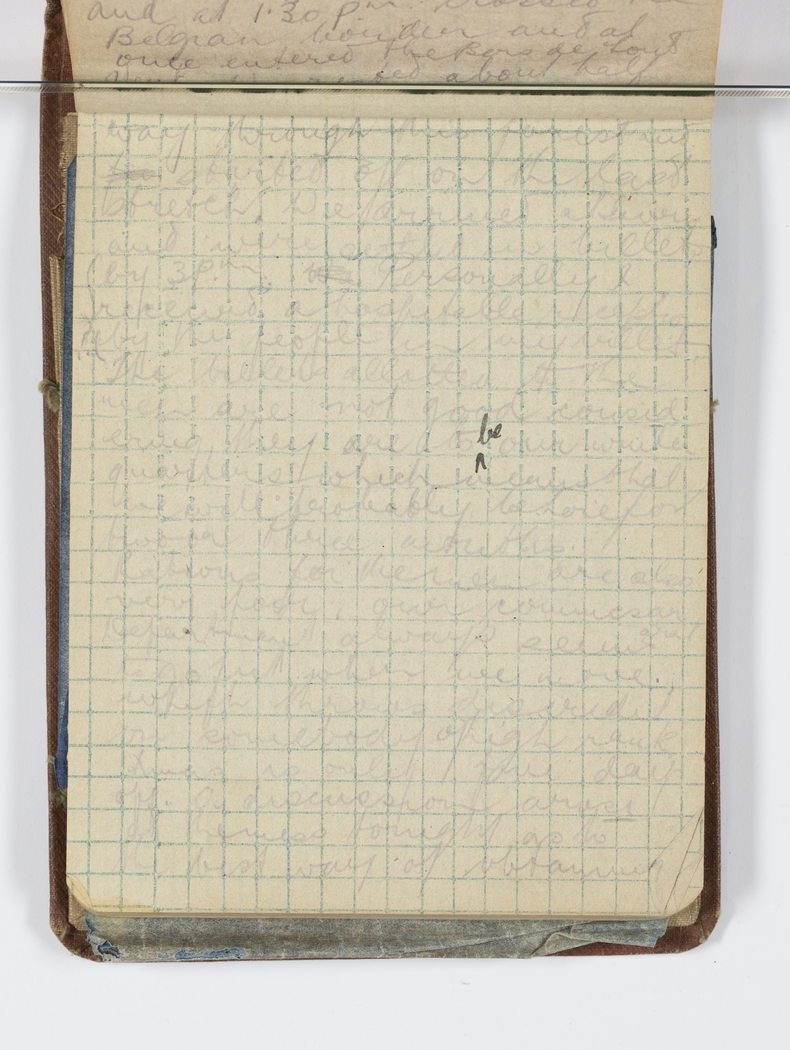 and at 1.30 pm. crossed the
Belgian border and at
once entered the Bois de
about half
way through this forest and
started off on the last
stretch. We arrived
and were settled in billets
by 3 p.m. Personally I
received a hospitable
by the people in my billet
The billets allotted to the
men are not good consid
ering they are to be our winter
quarters which means that
we will probably be here for
two or three months.
Rations for the men are also
very poor, our commissariat
Department always seems
to go fut when we move,
which throws discredit
on somebody of high rank
Xmas is only four days
off. A discussion arose
at the mess tonight as to
the best way of obtaining